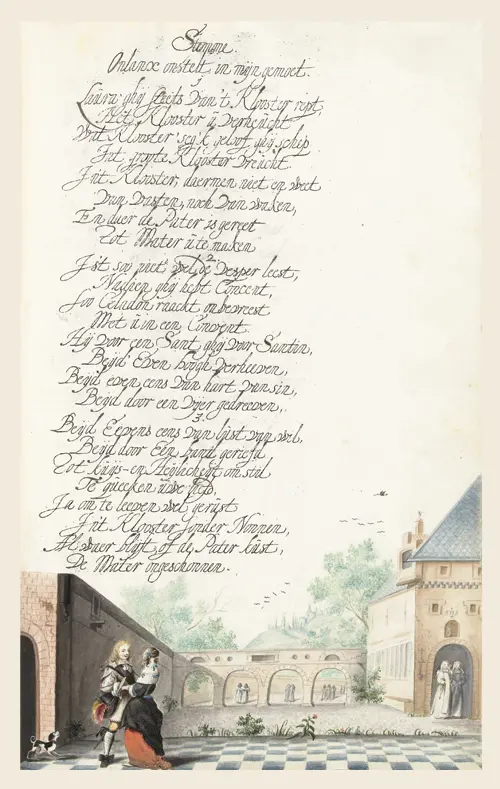 Stemme.
Onlancx onstelt in mijn gemoet.
1
Laura ghij steets van 't Klooster rept,
Het Klooster u verheucht
Wat Klooster seg 'k geloof ghij schip
Int groote Klooster vreucht
Int Klooster, daermen niet en weet
Van Vasten, noch van waken,
En daer de Pater is gereet
Tot Mater u te maken
2
Ist soo niet wel de Vesper leest,
Naghen ghij hebt Concent,
Soo Celadon raackt onbevreest
Met u in een Convent.
Hij voor een Sant ghij voor Santin,
Beyd' Even hoogh verheeven,
Beyd even eens van hart van sin,
Beyd door een vyer gedreeven,
3
Beyd Eevens eens van lust van wil,
Beyd door Een hand
Tot kuijs- en Heylicheyt om stil
Te queecken uwe
Ja om te leeven wel gerust
Int Klooster sonder Nonnen,
Al waer blyft of de Pater kust,
De Mater ongeschonnen.